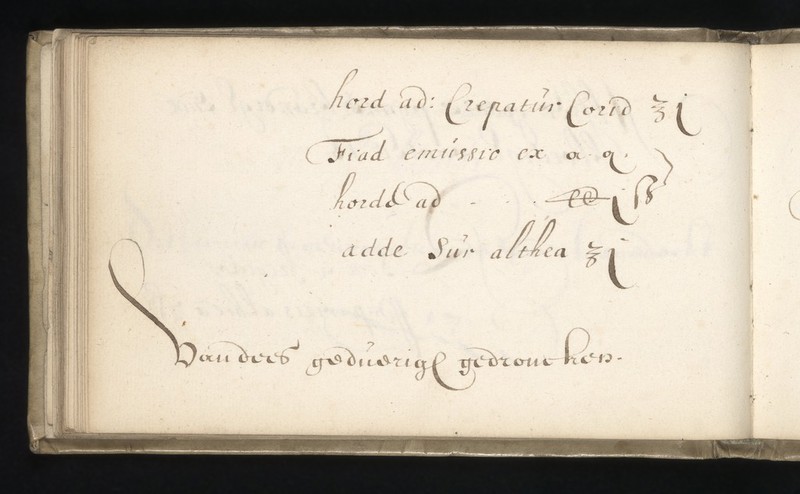 hord ad: Crepatúr Corid ʒ j
Fiad emússio ex a q.
horde ad - - - ℔ j ß
adde Súr althea ʒ j
Van dees gedúerigl gedroncken.